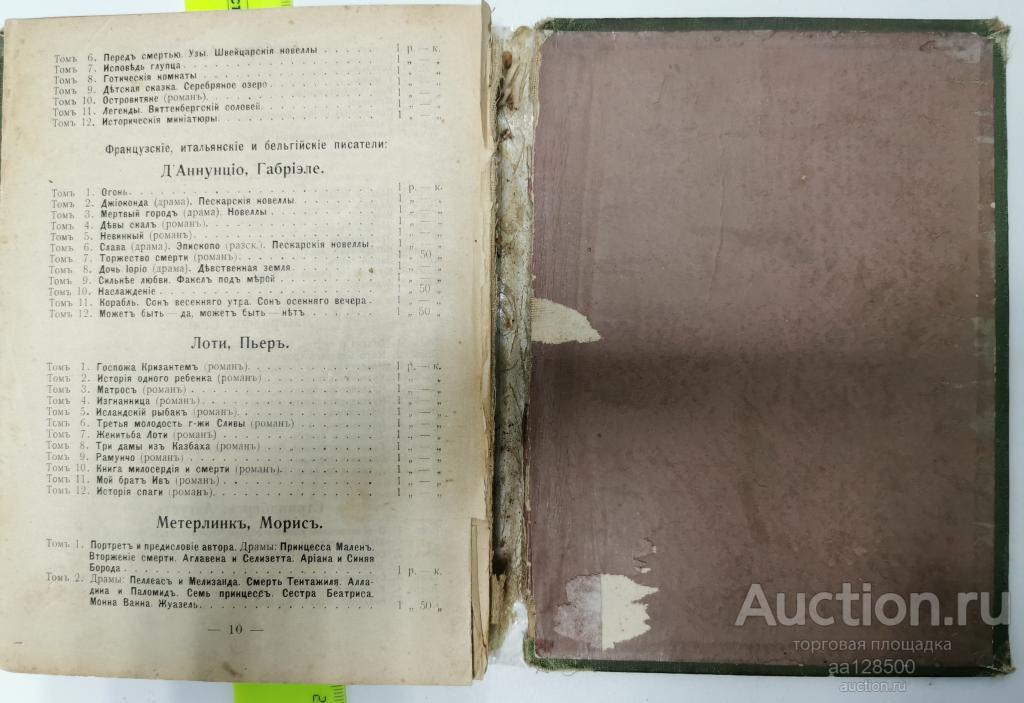 Томъ 6. Передъ смертью. Узы. Швейцарскія новеллы . . . . . 1 р. — к.
Томъ 7. Исповѣдь глупца. . . . . . . . . . . 1 „ — „
Томъ 8. Готическія комнаты . . . . . . . . . . 1 „ — „
Томъ 9. Дѣтская сказка. Серебряное озеро . . . . . . . 1 „ — „
Томъ 10. Островитяне (романъ). . . . . . . . . . 1 „ — „
Томъ 11. Легенды. Виттенбергскій соловей. . . . . . . . 1 „ — „
Томъ 12. Историческія миніатюры. . . . . . . . . . 1 „ — „
Французскіе, итальянскіе и бельгійскіе писатели:
Д'Аннунціо, Габріэле.
Томъ 1. Огонь. . . . . . . . . . . . . 1 р. — к.
Томъ 2. Джіоконда (драма). Пескарскія новеллы. . . . . . 1 „ — „
Томъ 3. Мертвый городъ (драма). Новеллы . . . . . . . 1 „ — „
Томъ 4. Дѣвы скалъ (романъ). . . . . . . . . . 1 „ — „
Томъ 5. Невинный (романъ) . . . . . . . . . . 1 „ — „
Томъ 6. Слава (драма). Эпископо (разск.). Пескарскія новеллы. 1 „ — „
Томъ 7. Торжество смерти (романъ). . . . . . . . . 1 „ 50 „
Томъ 8. Дочь Іоріо (драма). Дѣвственная земля. . . . . . 1 „ — „
Томъ 9. Сильнѣе любви. Факелъ подъ мѣрой . . . . . . 1 „ — „
Томъ 10. Наслажденіе . . . . . . . . . . . . 1 „ 50 „
Томъ 11. Корабль. Сонъ весенняго утра. Сонъ осенняго вечера . 1 „ — „
Томъ 12. Можетъ быть — да, можетъ быть — нѣтъ . . . . . 1 „ 50 „
Лоти, Пьеръ.
Томъ 1. Госпожа Кризантемъ (романъ). . . . . . . . 1 р. — к.
Томъ 2. Исторія одного ребенка (романъ) . . . . . . . 1 „ — „
Томъ 3. Матросъ (романъ). . . . . . . . . . . 1 „ — „
Томъ 4. Изгнанница (романъ) . . . . . . . . . . 1 „ — „
Томъ 5. Исландскій рыбакъ (романъ). . . . . . . . . 1 „ — „
Томъ 6. Третья молодость г-жи Сливы (романъ) . . . . . 1 „ — „
Томъ 7. Женитьба Лоти (романъ) . . . . . . . . . 1 „ — „
Томъ 8. Три дамы изъ Казбаха (романъ) . . . . . . . 1 „ — „
Томъ 9. Рамунчо (романъ) . . . . . . . . . . . 1 „ — „
Томъ 10. Книга милосердія и смерти (романъ). . . . . . . 1 „ — „
Томъ 11. Мой братъ Ивъ (романъ) . . . . . . . . . 1 „ — „
Томъ 12. Исторія спаги (романъ). . . . . . . . . . 1 „ — „
Метерлинкъ, Морисъ.
Томъ 1. Портретъ и предисловіе автора. Драмы: Принцесса Маленъ.
Вторженіе смерти. Аглавена и Селизетта. Аріана и Синяя
Борода . . . . . . . . . . . . . 1 р. — к.
Томъ 2. Драмы: Пеллеасъ и Мелизанда. Смерть Тентажиля. Алла-
дина и Паломидъ. Семь принцессъ. Сестра Беатриса.
Монна Ванна. Жуазель. . . . . . . . . . 1 „ 50 „
— 10 —
Auction.ru
торговая площадка
aa128500
auction.ru